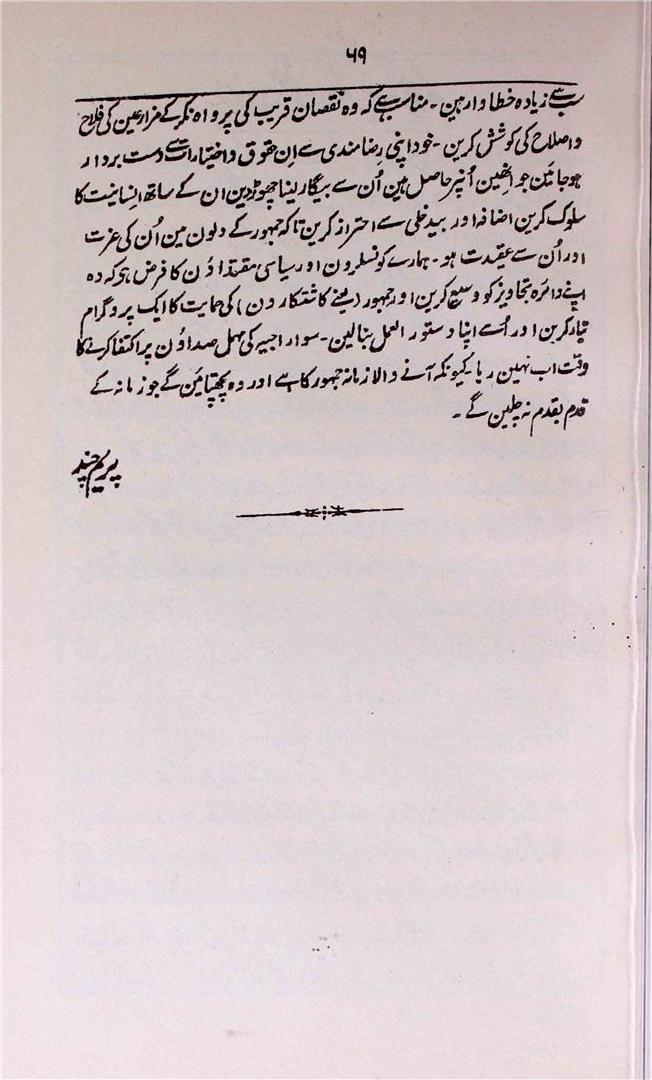 ۶۹
سب سے زیادہ خطاوار ہین۔ مناسب ہے کہ وہ نقصان قریب کی پرواہ نکر کے مزارعین کی فلاح
و اصلاح کی کوشش کرین۔ خود اپنی رضامندی سے اِن حقوق و اختیارات سے دست بردار
ہو جائین جو انھین اُنپر حاصل ہین اُن سے بیگار لینا چھوڑ دین ان کے ساتھ انسانیت کا
سلوک کرین اضافہ اور بیدخلی سے احتراز کرین تاکہ جمہور کے دلون مین اُن کی عزت
اور اُن سے عقیدت ہو۔ ہمارے کونسلرون اور سیاسی مقتداؤن کا فرض ہو کہ وہ
اپنے دائرہ تجاویز کو وسیع کرین اور جمہور (یعنے کاشتکارون) کی حمایت کا ایک پروگرام
تیار کرین اور اُسے اپنا دستور العمل بنا لین۔ سوراجیہ کی مہمل صداؤن پر اکتفا کرنے کا
وقت اب نہین رہا۔ کیونکہ آنے والا زمانہ جمہور کا ہے اور وہ پچھتائین گے جو زمانہ کے
قدم بقدم نہ چلین گے۔
پریم چند